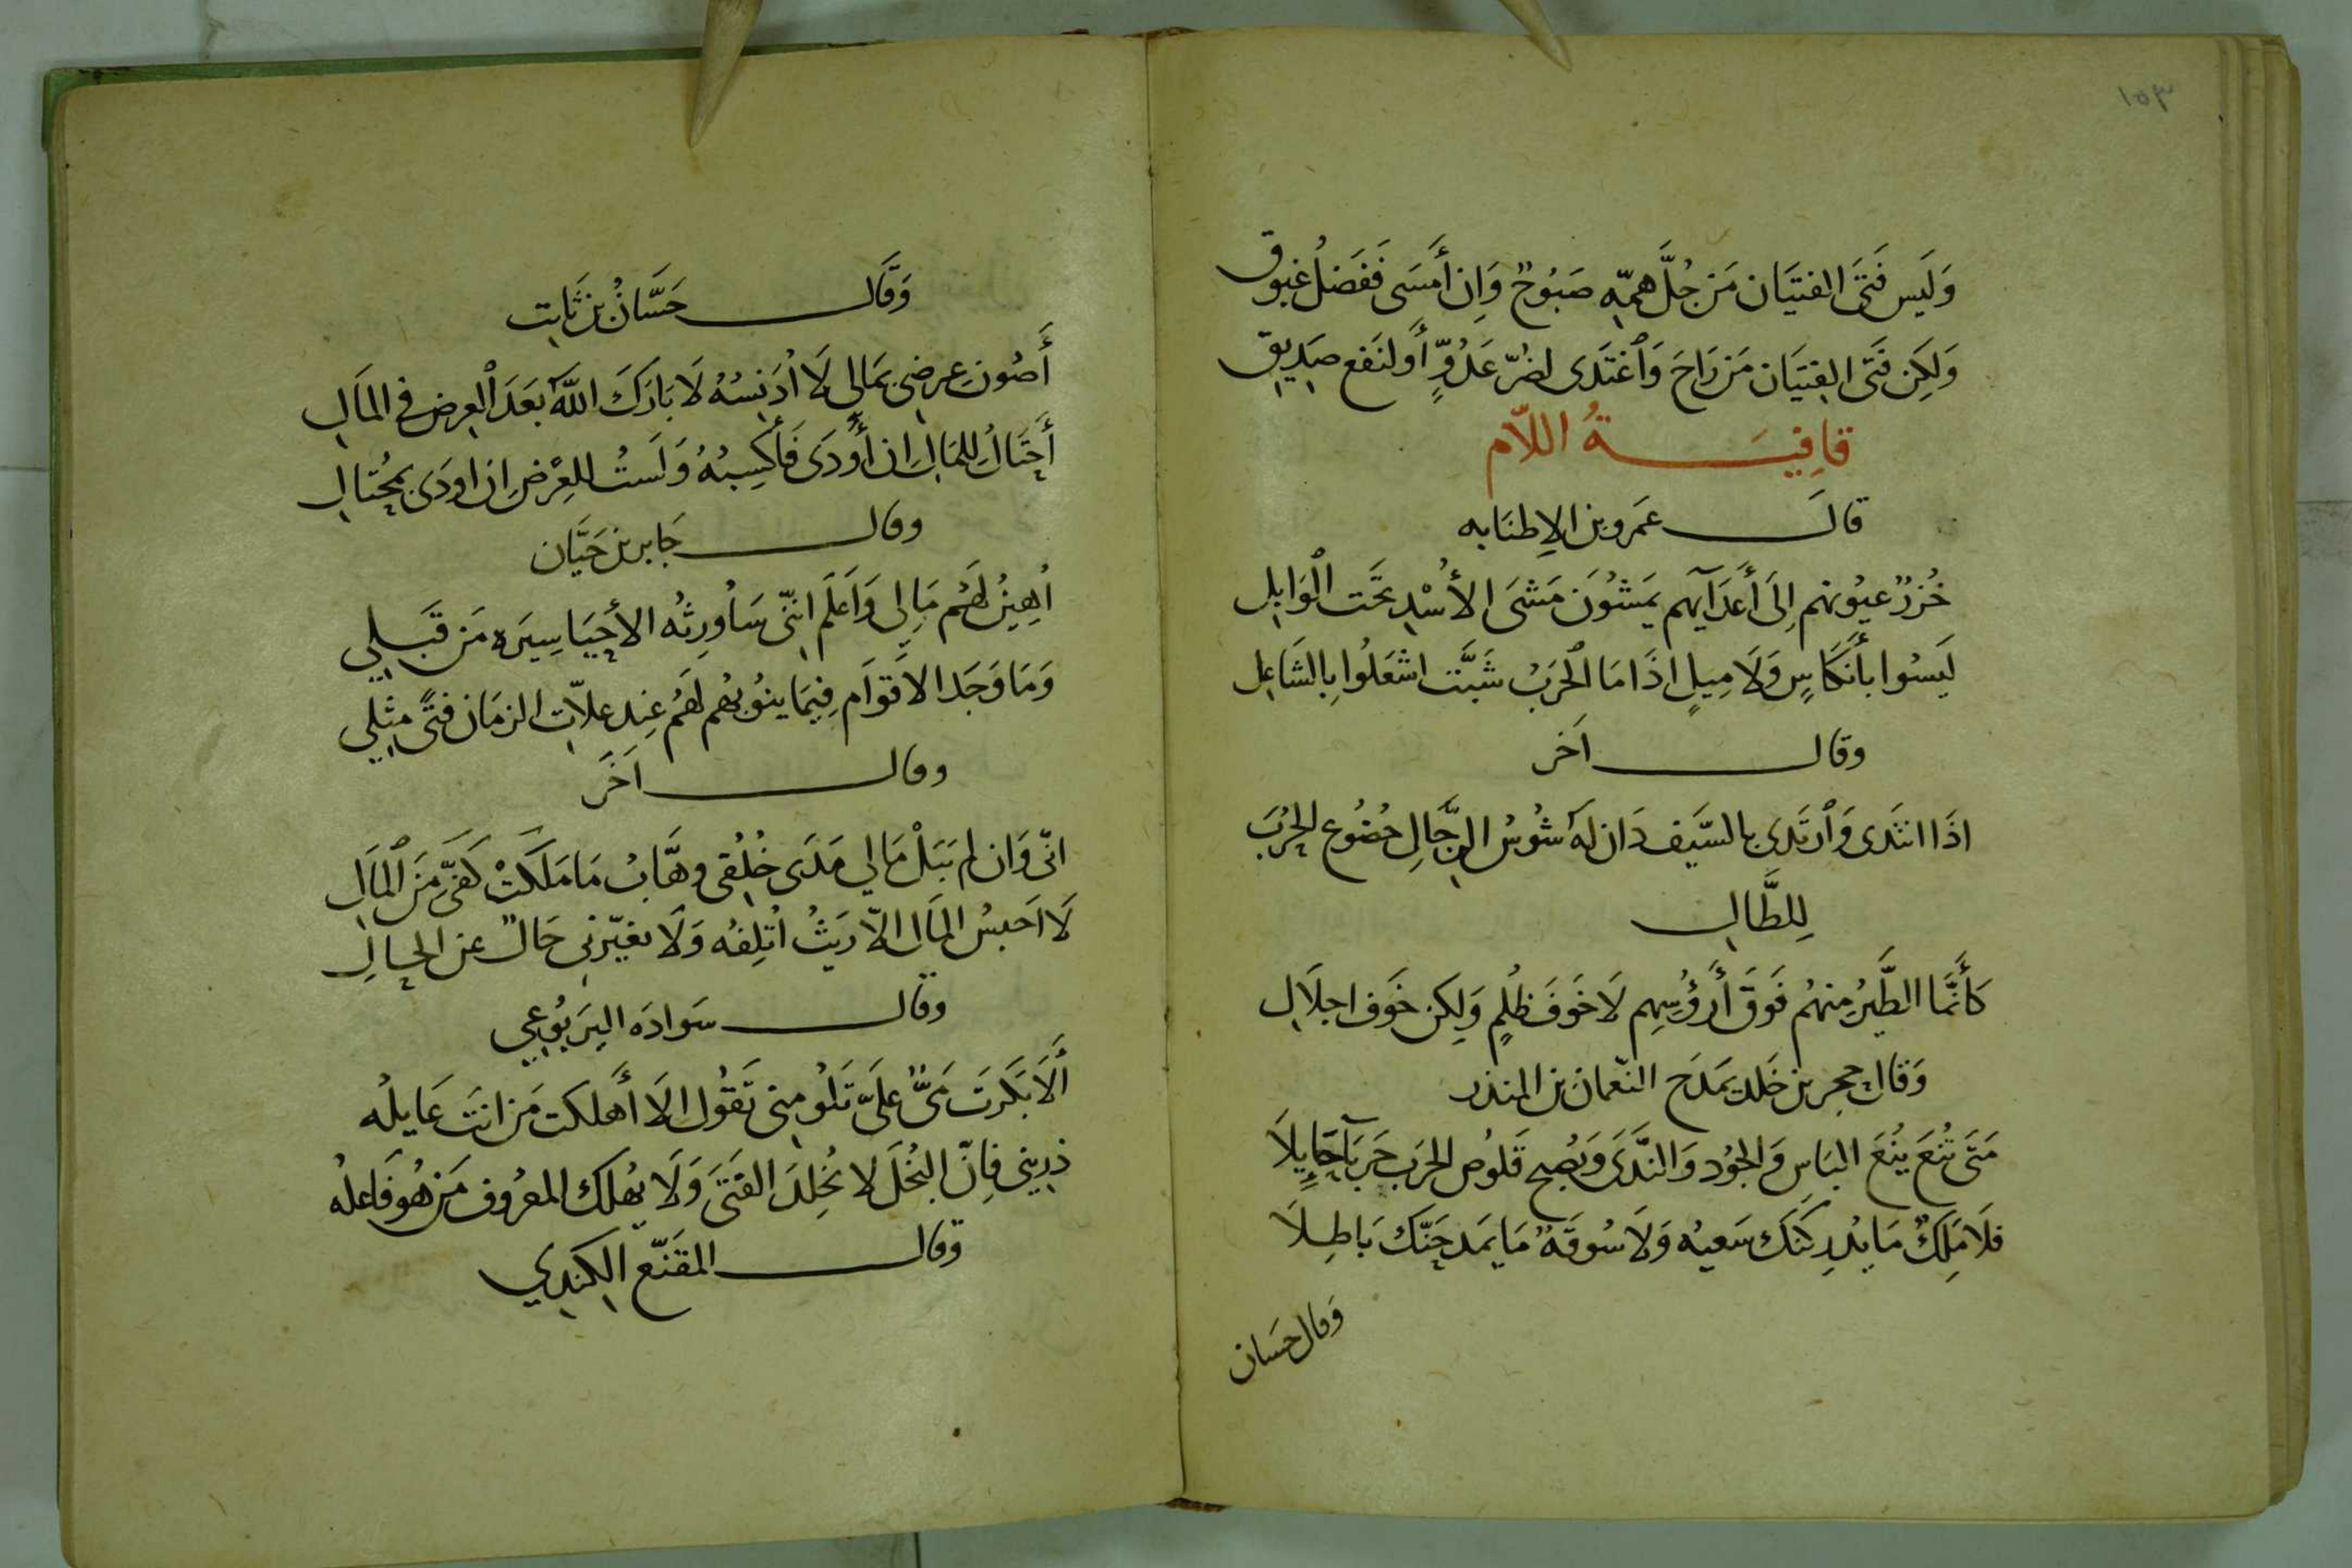 ١٥٣
وَلَيس فَتَى الفتيَان مَن جُلَّ همّه صَبُوحٌ وَإِن أَمسَى فَفَضلُ غبوق
وَلَكِن فَتَى الفِتيَان مَن رَاحَ وَاَغتَدى لضُرّ عَدُوٍّ أَو لنَفع صَدِيق
قافِيَةُ اللاّم
قالَ عَمَرو بن الاِطنَابه
خُزرٌ عيُونهم إِلَى أَعدَآيهم يَمشُونَ مَشىَ الأُسْدِ تَحَت الوَابِلِ
لَيسُوا بأَنكَاسٍ وَلَا مِيلٍ اذَا مَا الحَربُ شَبَّت اشعَلُوا بِالشَاعِل
وقال اَخَر
اذَا انتَدى وَاَرتَدى بالسَّيف دَان لَه شُوسُ الرِّجَالِ خضُوع الجُربَ
لِلطَّالِ
كَأَنَّمَا الطَّيرُ مِنهُم فَوقَ أَرؤُسِهِم لَا خَوفَ ظُلمٍ وَلِكن خَوف اجلَالِ
وَقال حجر بن خَلد يَمدَح النّعمان بن المنذر
مَتَى تُنعَ يُنعَ البَاسِ وَالجُود وَالنَّدَى وَيُصبح قَلُوص الحَرَب جَربَآ حَايِلَا
فلَا مَلِكٌ مَا يُدرِكَنَّك سَعيُه وَلَا سُوقَةٌ مَا يَمدحَنّكَ بَاطِلَا
وَقال حَسان
وَقَال حَسَّانُ بن ثَابت
أَصُون عِرضِي بمَالي لَا أُدَنِسُهُ لَا بَارَكَ اللَّه بَعَدَ العِرض في المَالِ
أَحتَالُ لِلمَالِ اِن أَودَى فَأَكسِبُهُ وَلَستُ للعِرْضِ اِن اودَى بمُحتالِ
وقال جَابر بن حَيَّان
اُهِينُ لَهُم مَالِي وَاَعلَم انّنى سَاُورِثُه الأحيَا سِيرَه مَن قَبلِي
وَمَا وَجَدا الاَقوَام فِيمَا ينُوبُهم لَهُم عِند عِلاّت الزمَان فتًى مثِلِي
وقال اَخَر
انّى وَان لم يَنَلْ مَالي مَدَى خُلُقى وهَّابُ مَا مَلَكَتْ كَفىّ مِنَ المَالِ
لَا اَحبسُ المَال الاّ رَيثُ اُتلِفُه وَلَا يغيّرنى حَالٌ عن الحالِ
وقال سَوادَه اليَربُوعِي
أَلَا بَكَرَت مَىٌّ عَلَىّ تَلُومنِى تَقُول الَا أَهلكت مَن انتَ عَايلُه
ذرِينِى فاِنّ البُخلَ لا يُخِلدَ الفَتَى وَلَا يُهلك المعرُوف مَن هُو فَاعلُه
وقال المقَنّع الكِندِي